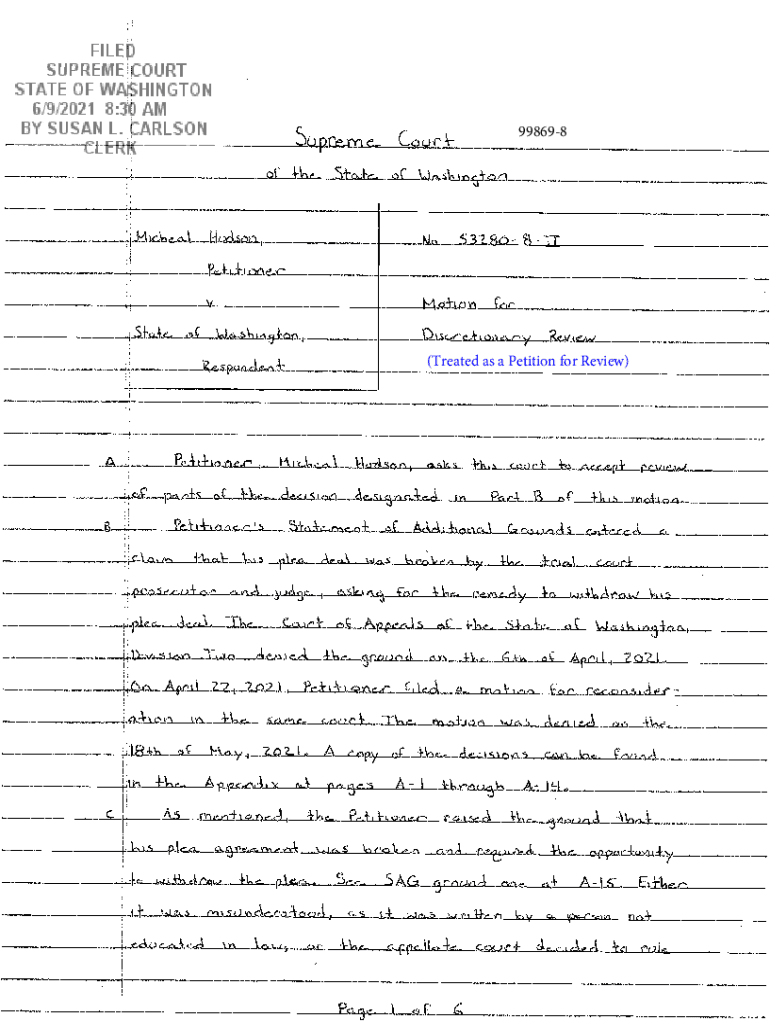 FILED
SUPREME COURT
STATE OF WASHINGTON
6/9/2021 8:30 AM
BY SUSAN L. CARLSON
CLERK
99869-8
Supreme Court
of the State of Washington
Micheal Hudson,
No. 53280-8-II
Petitioner
v.
Motion for
State of Washington,
Discretionary Review
(Treated as a Petition for Review)
Respondent
A Petitioner Micheal Hudson, asks this court to accept review
of parts of the decision designated in Part B of this motion.
B Petitioner's Statement of Additional Grounds entered a
claim that his plea deal was broken by the trial court
prosecutor and judge, asking for the remedy to withdraw his
plea deal. The Court of Appeals of the State of Washington,
Division Two denied the ground on the 6th of April, 2021.
On April 22, 2021, Petitioner filed a motion for reconsider-
ation in the same court. The motion was denied on the
18th of May, 2021. A copy of the decisions can be found
in the Appendix at pages A-1 through A-14.
C As mentioned, the Petitioner raised the ground that
his plea agreement was broken and required the opportunity
to withdraw the plea. See SAG ground one at A-15. Either
it was misunderstood, as it was written by a person not
educated in law, or the appellate court decided to rule
Page 1 of 6